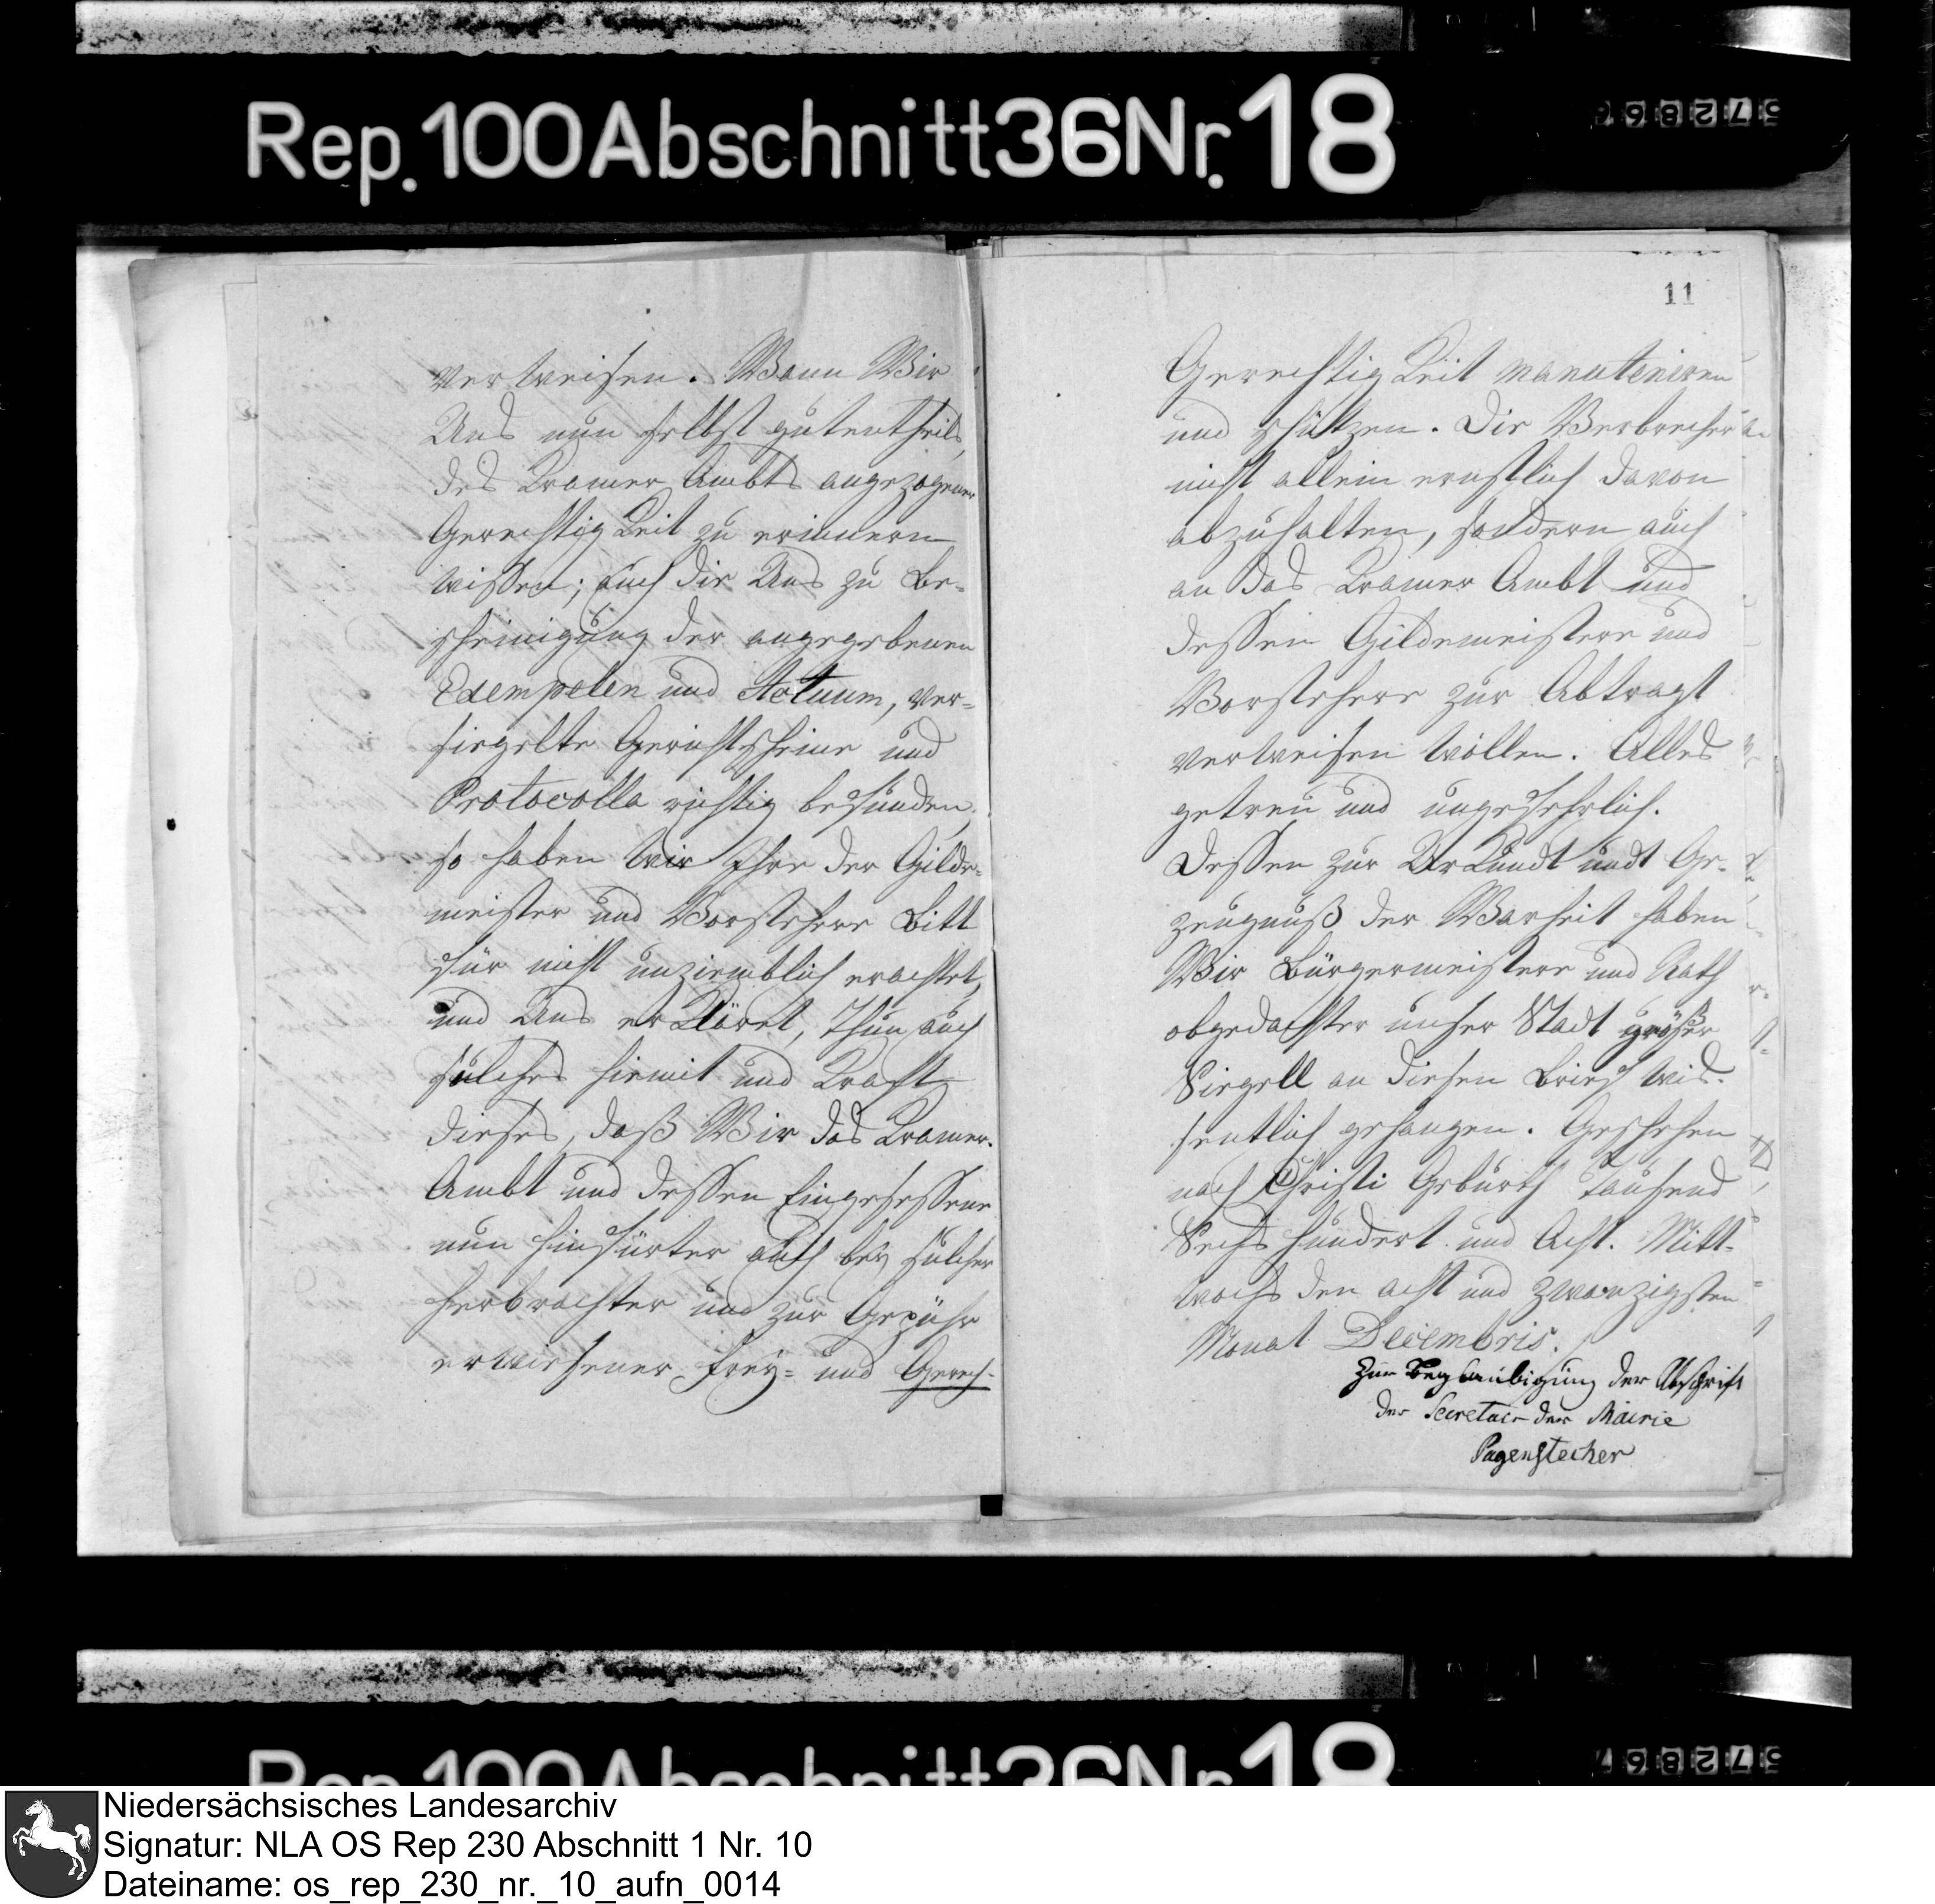 57286
Rep. 100 Abschnitt 36 Nr. 18
verweisen. Wann Wir
Uns nun selbst gutentheils
des Kramer Ambts angezogener
Gerechtigkeit zu erinnern
wissen; Auch die Uns zu Be-
scheinigung der angegebenen
Exempelen und Actuum, ver-
siegelte Gerichtscheine und
Protocolla richtig befunden,
so haben Wir Ihre der Gilde-
meister und Vorstehere Bitt
für nicht unziemblich erachtet,
und Uns erkläret, Thun auch
sulches hiemit und Kraft
dieses, daß Wir das Kramer-
Ambt und dessen Eingesessene
nun hinfürter auch bey sulcher
herbrachter und zur Gepühr
erwiesener Frey- und Gerech-
11
Gerechtigkeit manuteniren
und schützen. Die Verbrechere
nicht allein ernstlich davon
abzuhalten, sondern auch
an das Kramer Ambt und
dessen Gildemeistere und
Vorstehere zur Abtragt
verweisen wollen. Alles
getreu und ungefehrlich.
Dessen zur Urkundt undt Ge-
zeugnuß der Warheit haben
Wir Bürgermeistere und Rath
obgedachter unser Stadt größer
Siegell an diesen Brief wis-
sentlich gehangen. Geschehen
nach Christi Geburth Tausend
Sechs hundert und Acht. Mitt-
wochs den acht und zwanzigsten
Monat Decembris.
Zur Beglaubigung der Abschrift
der Secretair der Mairie
Pagenstecher
57286
Rep. 100 Abschnitt 36 Nr. 18
Niedersächsisches Landesarchiv
Signatur: NLA OS Rep 230 Abschnitt 1 Nr. 10
Dateiname: os_rep_230_nr._10_aufn_0014